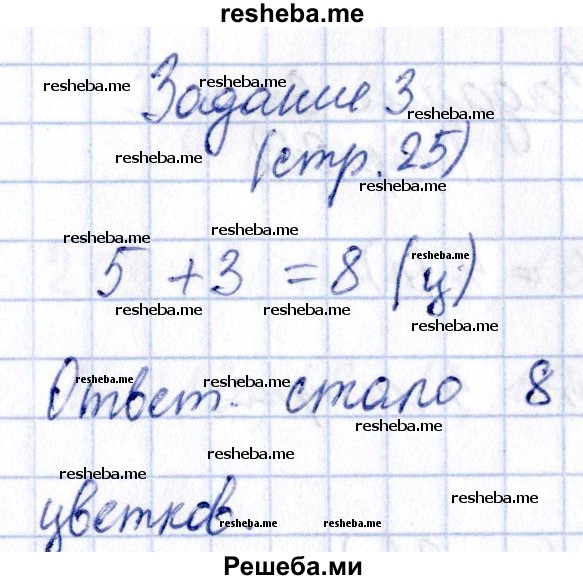 resheba.me
Задание 3
(стр. 25)
5 + 3 = 8 (ц)
Ответ: стало 8
цветков.
resheba.me resheba.me
resheba.me
resheba.me
resheba.me
resheba.me resheba.me
resheba.me
resheba.me resheba.me
resheba.me
resheba.me resheba.me
resheba.me
resheba.me
resheba.me
resheba.me
resheba.me resheba.me
Решеба.ми